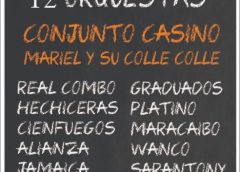 12 ORQUESTAS
CONJUNTO CASINO
MARIEL Y SU COLLE COLLE
REAL COMBO GRADUADOS
HECHICERAS PLATINO
CIENFUEGOS MARACAIBO
ALIANZA WANCO
JAMAICA SARANTONY